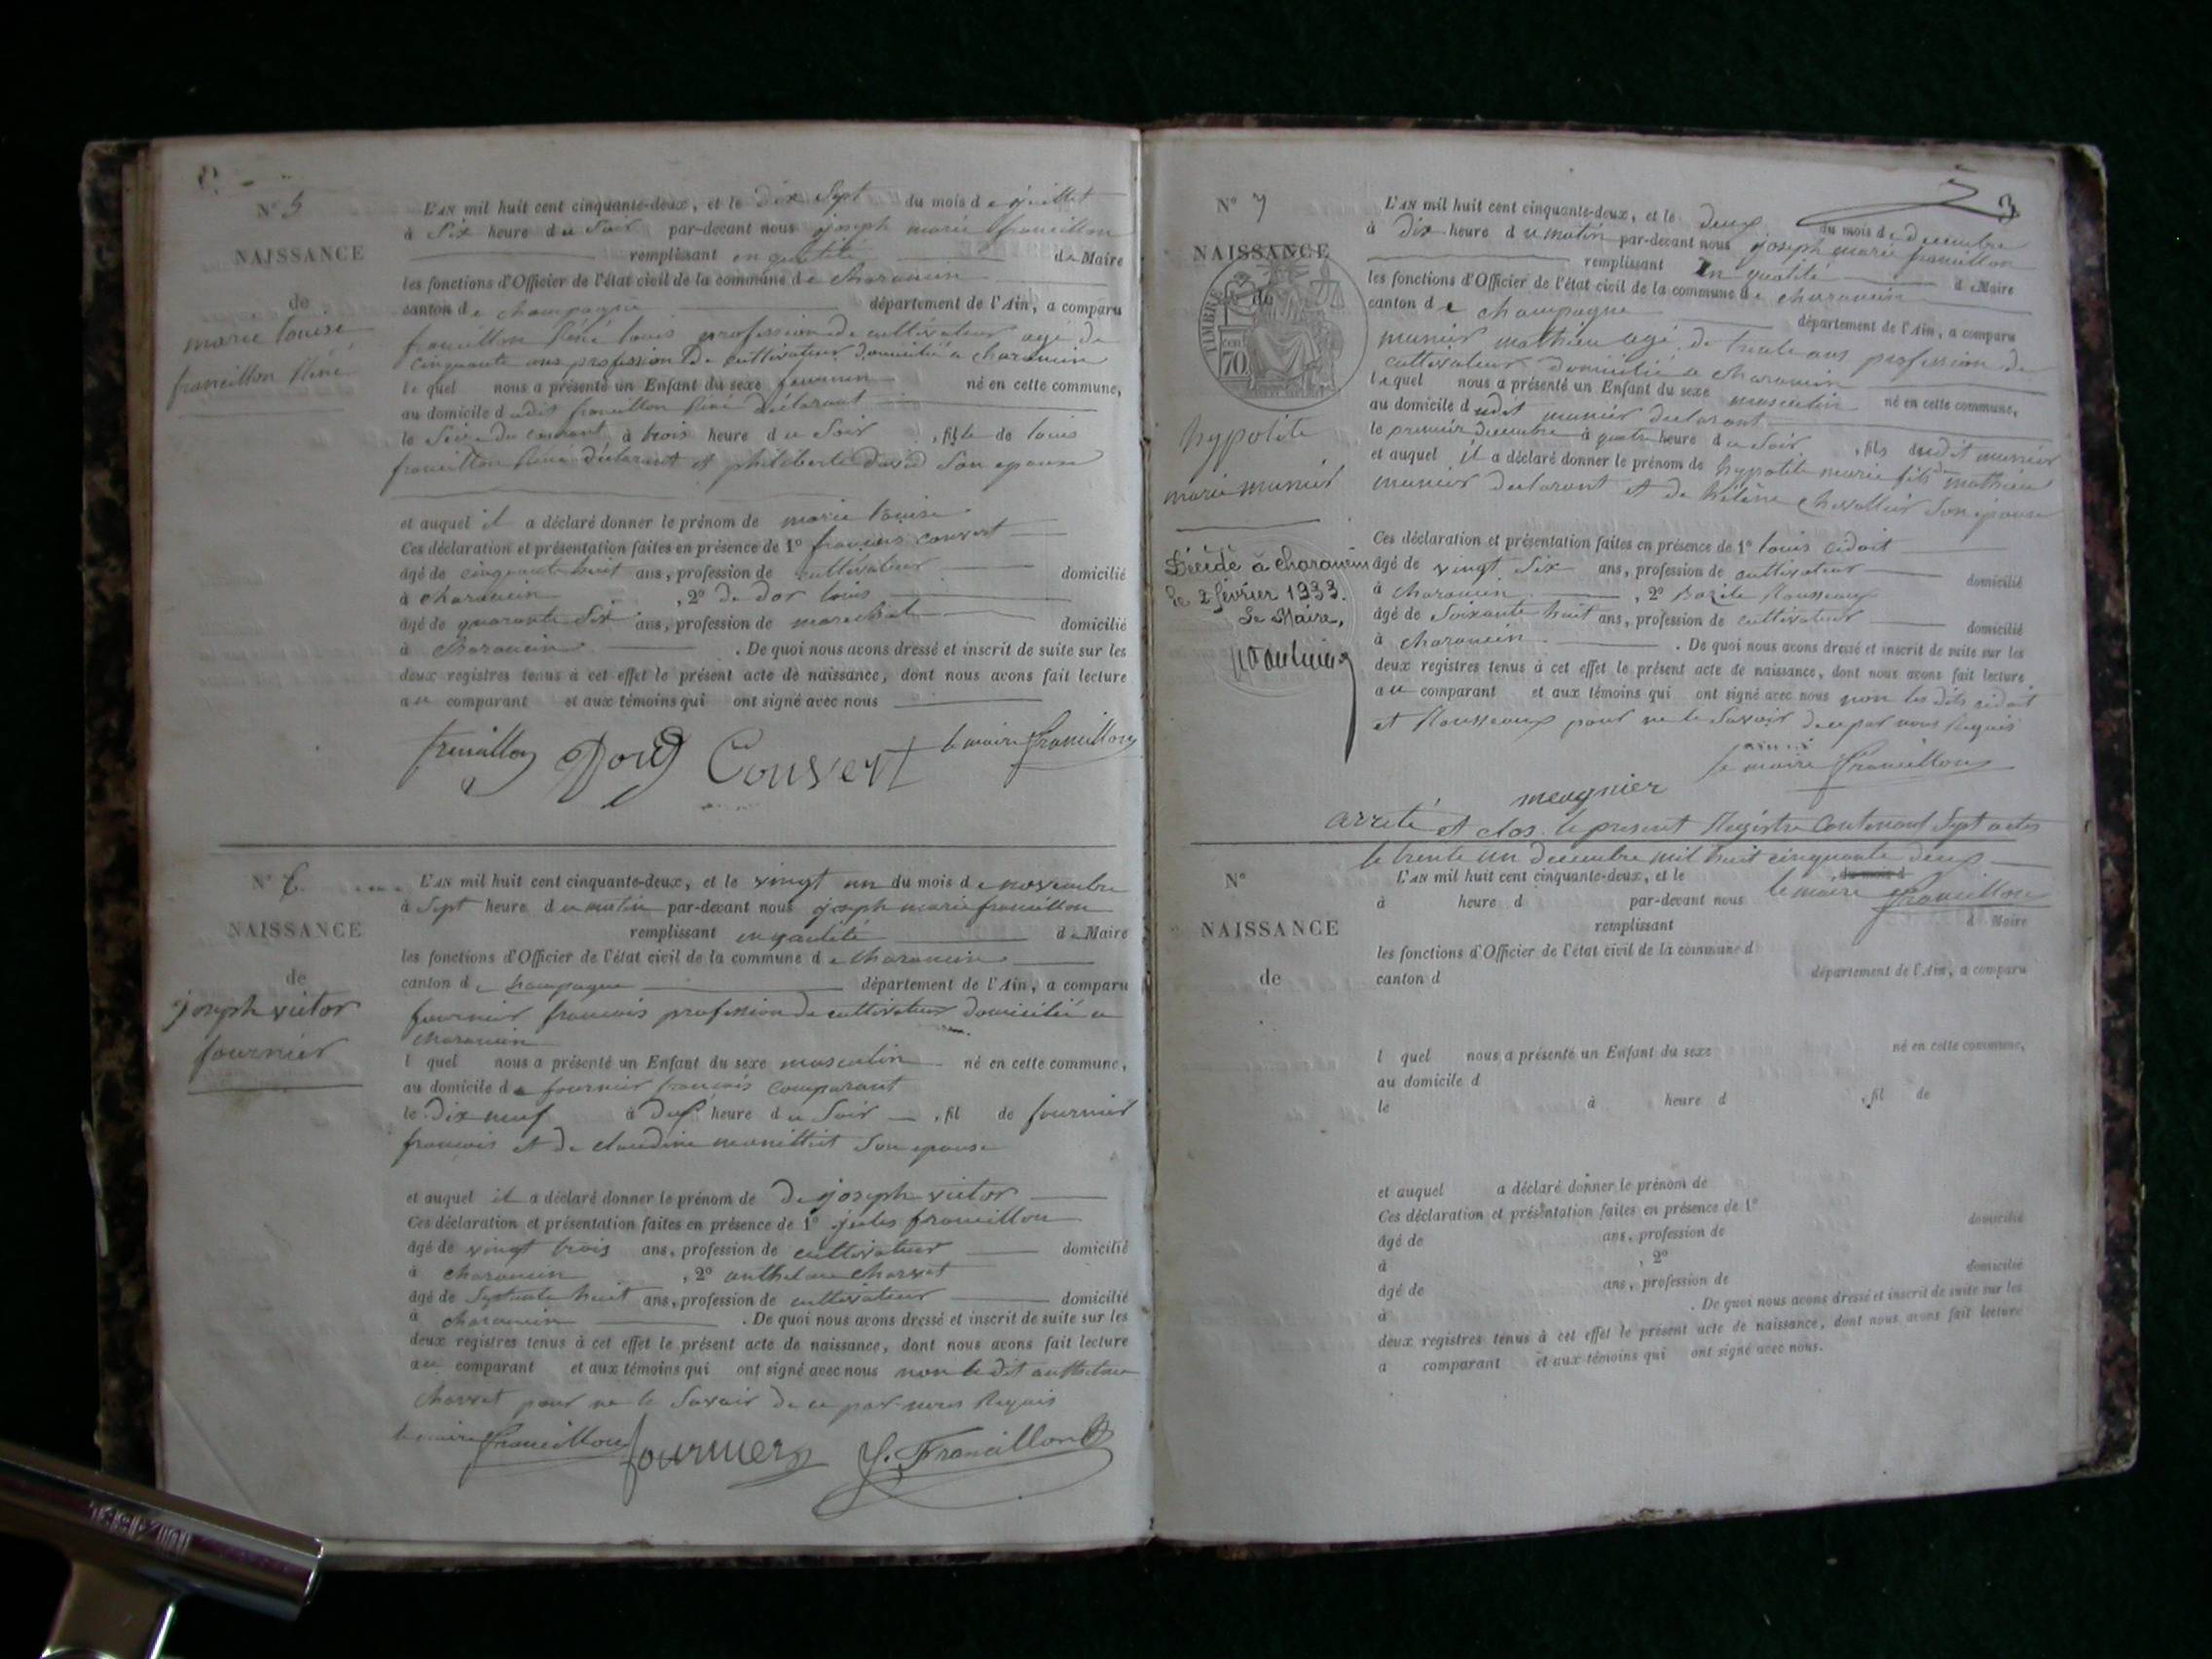 N° 5
NAISSANCE
de
marie louise
francillon Réné
L'AN mil huit cent cinquante-deux, et le dix Sept du mois de juillet
à Six heure du Soir par-devant nous joseph marie francillon
remplissant en qualité de Maire
les fonctions d'Officier de l'état civil de la commune de charancin
canton de champagne département de l'Ain, a comparu
francillon Réné louis profession de cultivateur agé de
cinquante ans profession de cultivateur domicilié a charancin
lequel nous a présenté un Enfant du sexe feminin né en cette commune,
au domicile dudit francillon Réné déclarant
le Seize du courant à trois heure du Soir , fille de louis
francillon Réné déclarant et philiberte david Son epouse
et auquel il a déclaré donner le prénom de marie louise
Ces déclaration et présentation faites en présence de 1° françois convert
âgé de cinquante huit ans, profession de cultivateur domicilié
à charancin , 2° de dor louis
âgé de quarante Six ans, profession de marechal domicilié
à charancin . De quoi nous avons dressé et inscrit de suite sur les
deux registres tenus à cet effet le présent acte de naissance, dont nous avons fait lecture
au comparant et aux témoins qui ont signé avec nous
francillon Convert le maire francillon
N° 6
NAISSANCE
de
joseph victor
fournier
L'AN mil huit cent cinquante-deux, et le vingt un du mois de novembre
à Sept heure du matin par-devant nous joseph marie francillon
remplissant en qualité de Maire
les fonctions d'Officier de l'état civil de la commune de charancin
canton de champagne département de l'Ain, a comparu
fournier francois profession de cultivateur domicilié a
charancin
l quel nous a présenté un Enfant du sexe masculin né en cette commune,
au domicile de fournier francois comparant
le dix neuf à dix heure du Soir , fil de fournier
francois et de claudine Son epouse
et auquel il a déclaré donner le prénom de De joseph victor
Ces déclaration et présentation faites en présence de 1° jules francillon
âgé de vingt trois ans, profession de cultivateur domicilié
à charancin , 2° anthelme charvet
âgé de Septante huit ans, profession de cultivateur domicilié
à charancin . De quoi nous avons dressé et inscrit de suite sur les
deux registres tenus à cet effet le présent acte de naissance, dont nous avons fait lecture
au comparant et aux témoins qui ont signé avec nous non le dit anthelme
charvet pour ne le Savoir de ce par nous Requis
le maire francillon fournier J. Francillon
3
N° 7
NAISSANCE
de
TIMBRE
70
hypolite
marie munier
Décédé à Charancin
le 2 février 1933.
Le Maire,
L'AN mil huit cent cinquante-deux, et le deux du mois de decembre
à dix heure du matin par-devant nous joseph marie francillon
remplissant en qualité de Maire
les fonctions d'Officier de l'état civil de la commune de charancin
canton de champagne département de l'Ain, a comparu
munier mathieu agé de trente ans profession de
cultivateur domicilié a charancin
lequel nous a présenté un Enfant du sexe masculin né en cette commune,
au domicile dudit munier declarant
le premier decembre à quatre heure du Soir , fils dudit munier
et auquel il a déclaré donner le prénom de hypolite marie fils de mathieu
munier declarant et de hélène chevallier Son epouse
Ces déclaration et présentation faites en présence de 1° louis cidoit
âgé de vingt Six ans, profession de cultivateur domicilié
à charancin , 2° Bazile Rousseaux
âgé de Soixante huit ans, profession de cultivateur domicilié
à charancin . De quoi nous avons dressé et inscrit de suite sur les
deux registres tenus à cet effet le présent acte de naissance, dont nous avons fait lecture
au comparant et aux témoins qui ont signé avec nous non les dits cidoit
et Rousseaux pour ne le Savoir de ce par nous Requis
le maire francillon
meugnier
arreté et clos le present Registre Contenant Sept actes
le trente un decembre mil huit cinquante deux
le maire francillon
N°
NAISSANCE
de
L'AN mil huit cent cinquante-deux, et le du mois d
à heure d par-devant nous
remplissant d Maire
les fonctions d'Officier de l'état civil de la commune d
canton d département de l'Ain, a comparu
l quel nous a présenté un Enfant du sexe né en cette commune,
au domicile d
le à heure d , fil de
et auquel a déclaré donner le prénom de
Ces déclaration et présentation faites en présence de 1°
âgé de ans, profession de domicilié
à , 2°
âgé de ans, profession de domicilié
à . De quoi nous avons dressé et inscrit de suite sur les
deux registres tenus à cet effet le présent acte de naissance, dont nous avons fait lecture
a comparant et aux témoins qui ont signé avec nous.